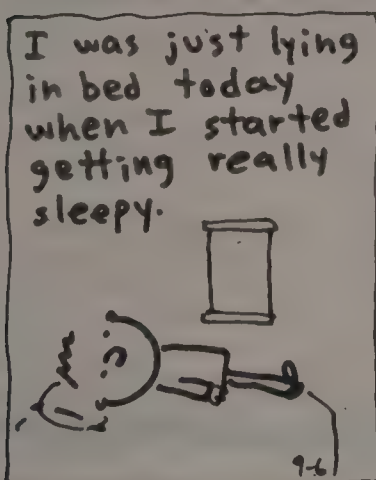 I was just lying
in bed today
when I started
getting really
sleepy.
9-6